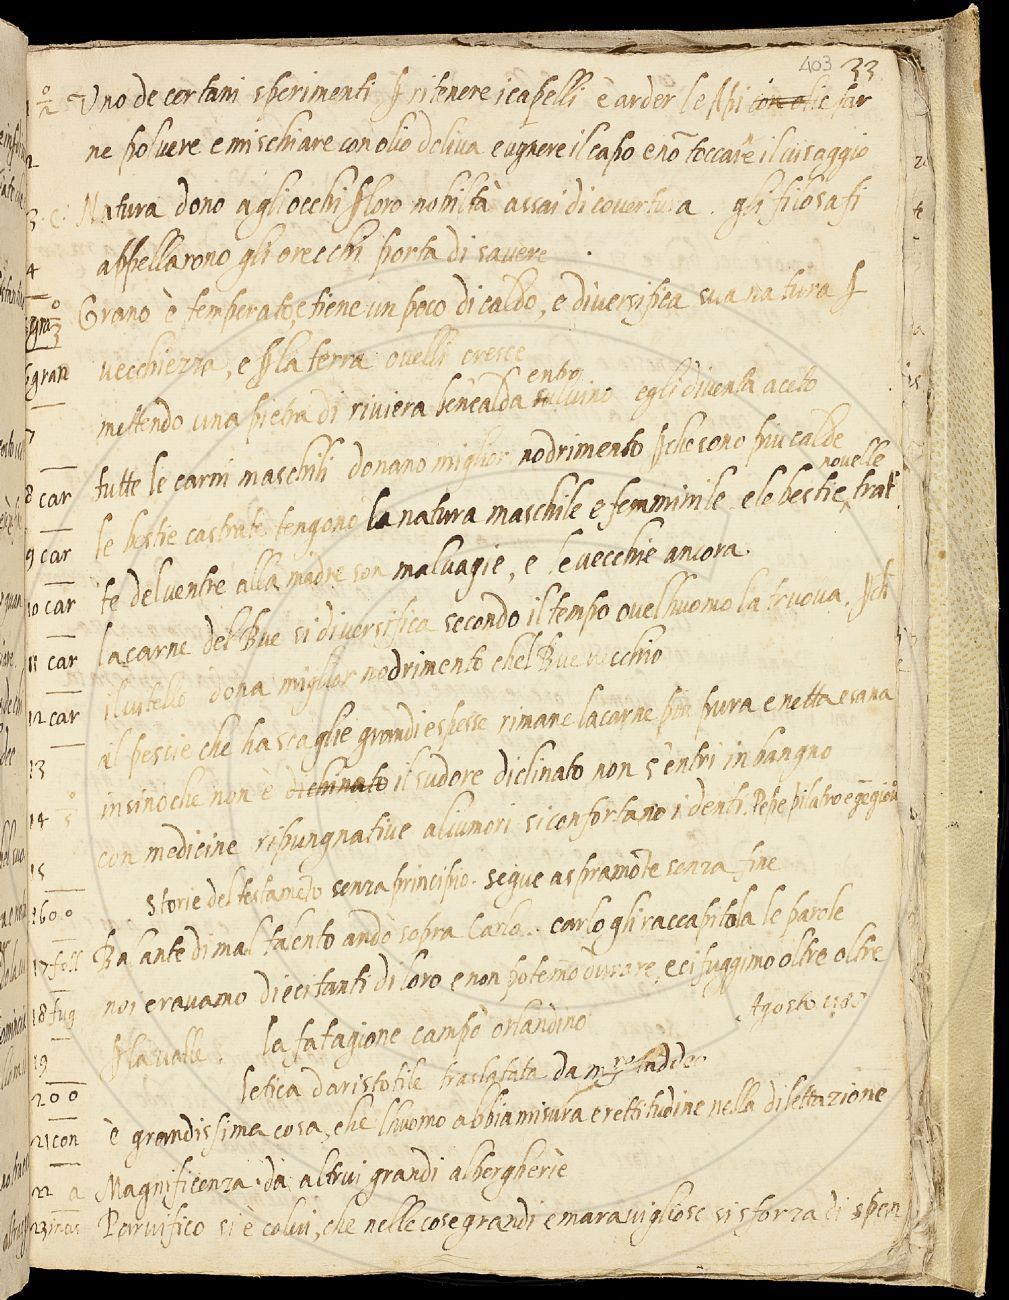 403 33
Uno de certani sperimenti ꝑ ritenere i capelli è arder le Api con olio far
ne polvere e mischiare con olio doliva e ugnere il capo e nō toccare il visaggio
Natura dono agli occhi ꝑ loro nobiltà assai di covertura . gli filosafi
appellarono gli orecchi porta di savere .
Grano è temperato, e tiene un poco di caldo, e diversifica sua natura ꝑ
vecchiezza, e ꝑ la terra ovelli cresce
entro
mettendo una pietra di riviera bene calda vino egli diventa aceto
tutte le carni maschili donano miglior nodrimento ꝑche sono piu calde
novelle
le bestie castrate tengono la natura maschile e femminile . e le bestie trat
te del ventre alla madre son malvagie, e le vecchie ancora.
la carne del Bue si diversifica secondo il tempo ovel huomo la truova. ꝑch
il vitello dona miglior nodrimento chel Bue vecchio
al pescie che ha scaglie grandi e spesse rimane la carne piu pura e netta e sana
insino che non è dichinato il sudore diclinato non s'entri in bangno
con medicine ripungnative aliumori si confortano i denti. Pepe pilatro e
Storie del testamēto senza principio . segue aspramōte senza fine
Balante di mal talento andò sopra Carlo . . carlo gli raccapitola le parole
noi eravamo dieci tanti di loro e non potemo durare, e ci fuggimo oltre oltre
ꝑ la valle . la fatagione campò orlandino Agosto 1580
letica daristotile traslatata da mro taddeo
è grandissima cosa, che lhuomo abbia misura e rettitudine nella dilettazione
Magnificenza . da altrui grandi albergherie
Parvifico si è colui, che nelle cose grandi e maravigliose si sforza di spen
2
3
4
gra
gran
7
8 car
9 car
10 car
11 car
12 car
13
14
15
16
17 foll
18 fug
19
20
21 con
22 a
23 mas